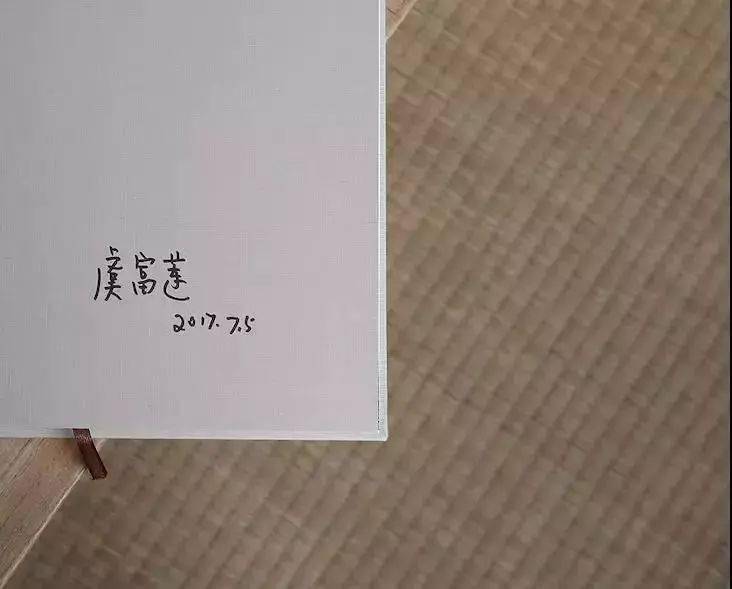 虞富莲
2017.7.5